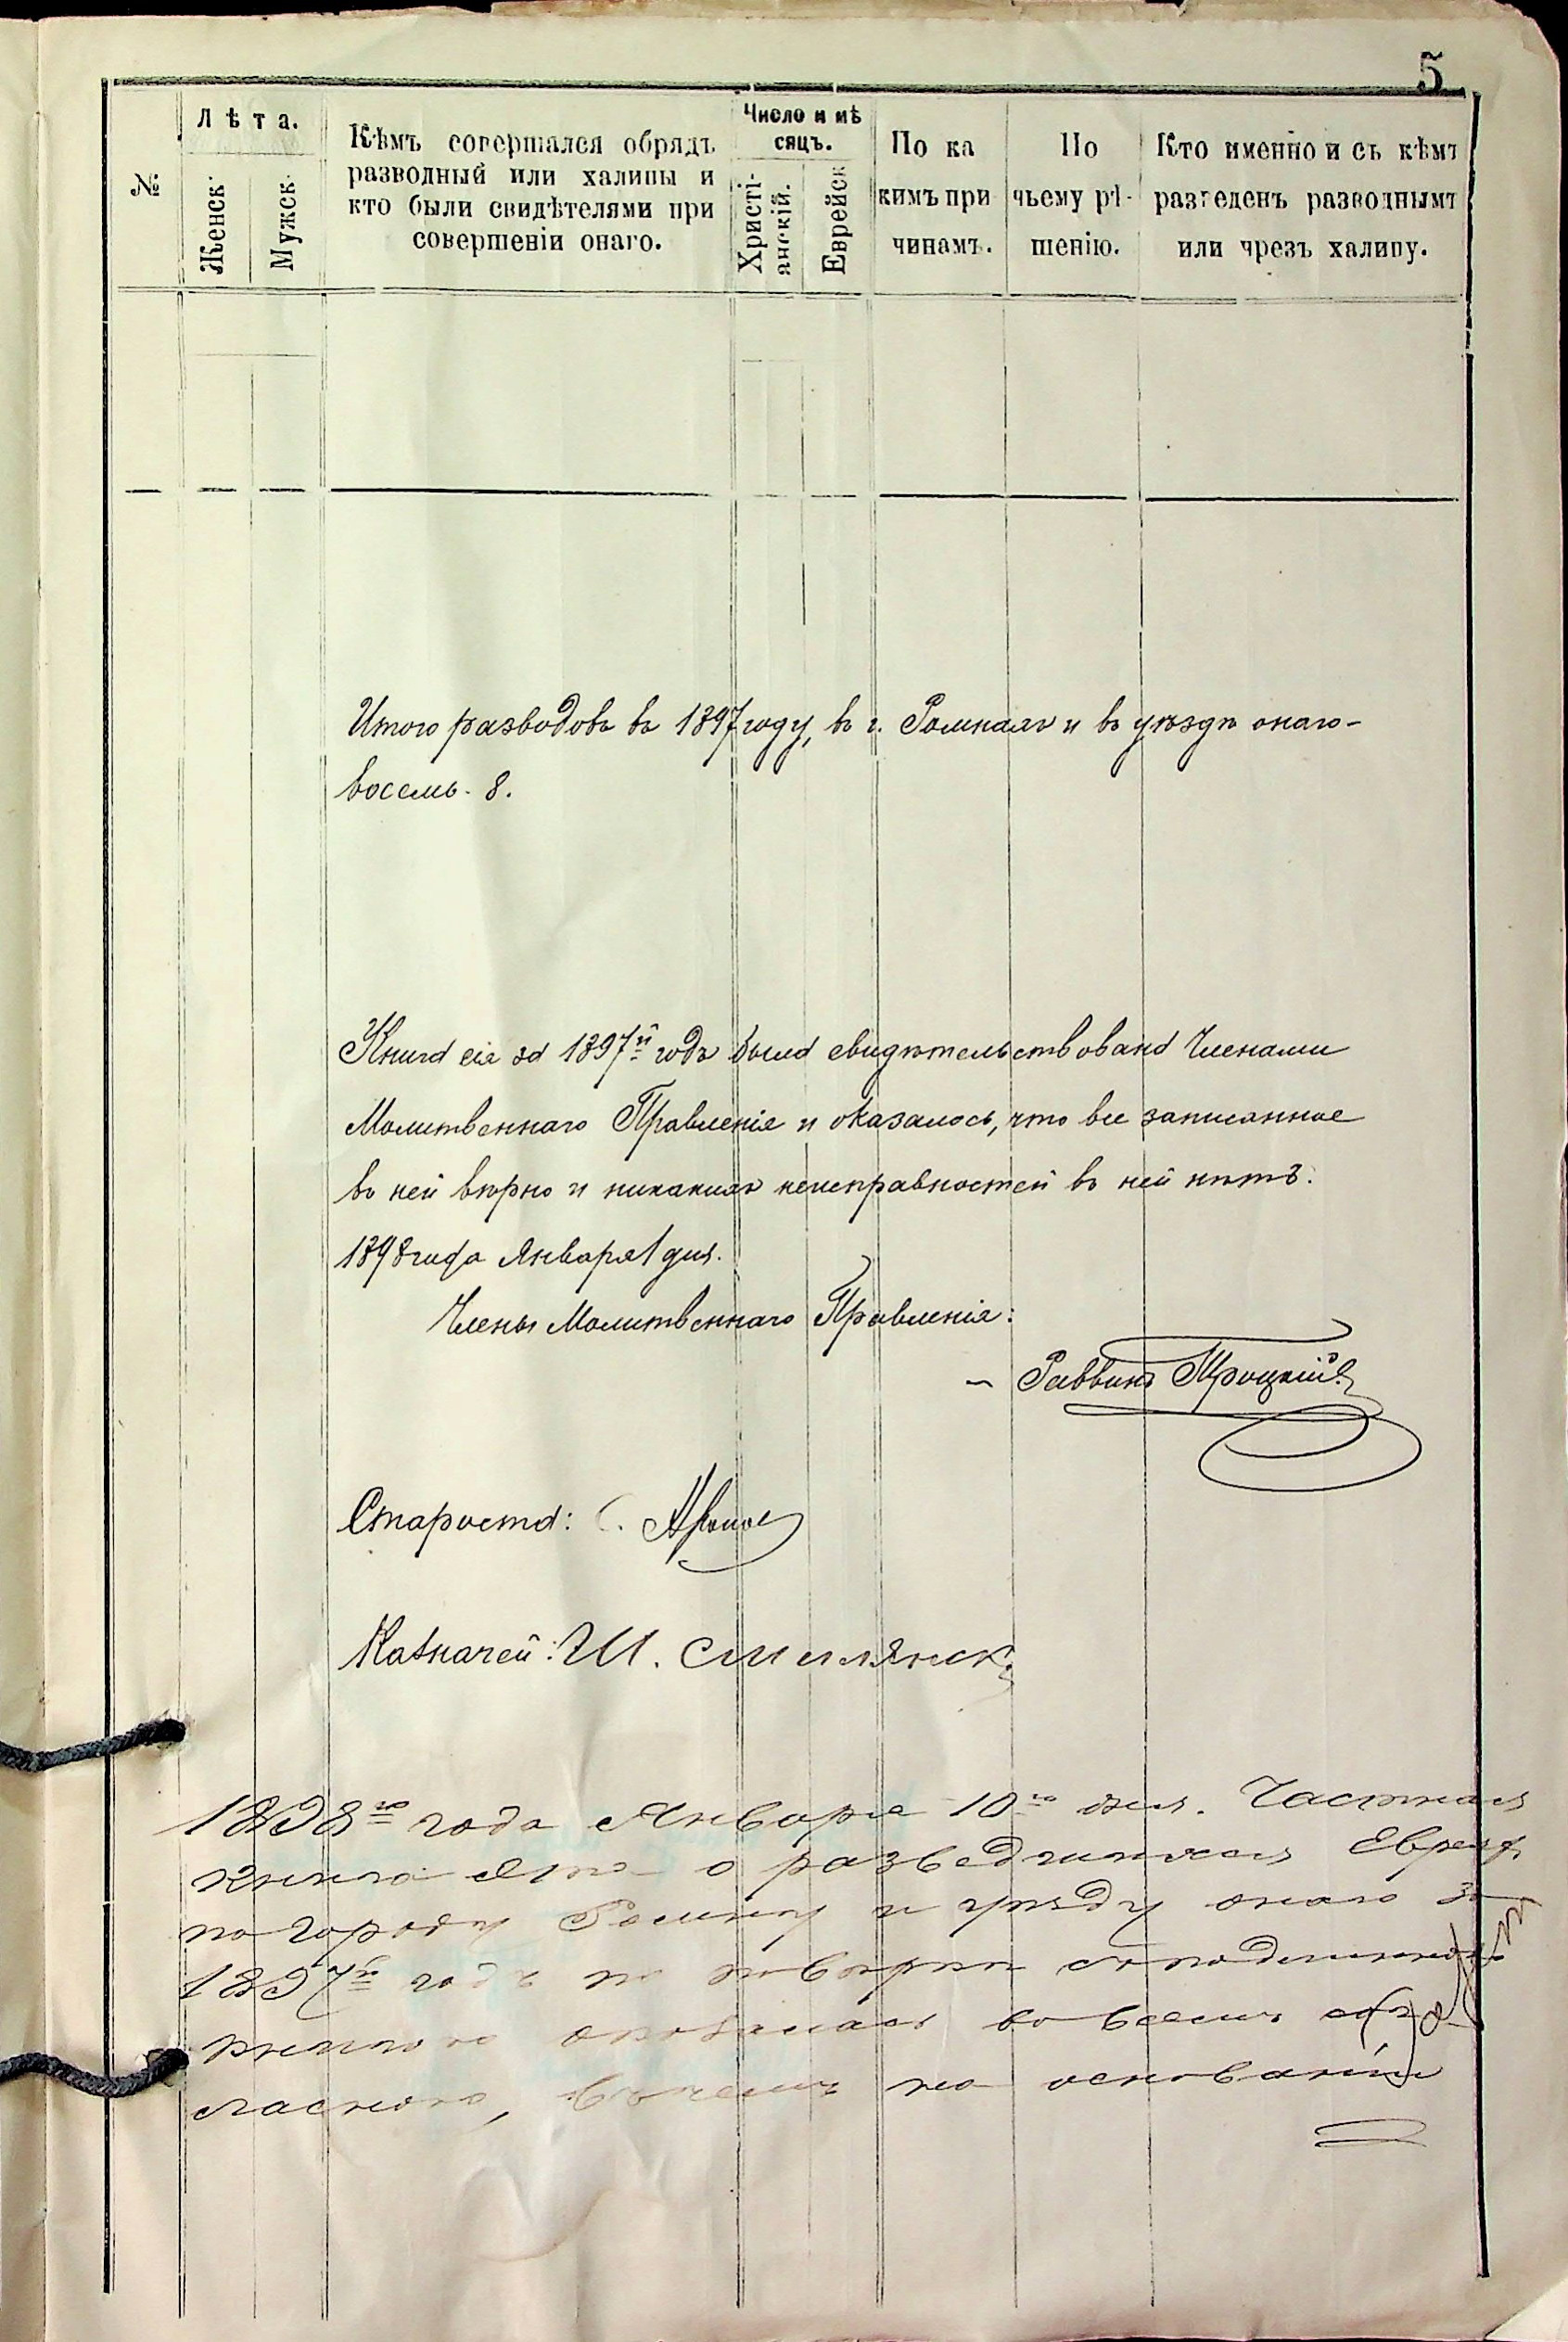 5
№
Лѣта.
Женск.
Мужск.
Кѣмъ совершался обрядъ
разводный или халицы и
кто были свидѣтелями при
совершеніи онаго.
Число и мѣ
сяцъ.
Христі-
анскій.
Еврейск
По ка
кимъ при
чинамъ.
По
чьему рѣ-
шенію.
Кто именно и съ кѣмъ
разведенъ разводнымъ
или чрезъ халицу.
Итого разводовъ въ 1897 году, въ г. Ромнахъ и въ уѣздѣ онаго -
восемь. 8.
Книга сія за 1897й годъ была свидѣтельствована Членами
Молитвеннаго Правленія и оказалось, что все записанное
въ ней вѣрно и никакихъ неисправностей въ ней нѣтъ.
1898 года Января 1 дня.
Члены Молитвеннаго Правленія:
Раввинъ Троцкій
Староста: С.
Казначей: Ш. Смилянск
1898го года Января 10го дня. Частная
книга эта о разведшихся Евреях
по городу Ромну и уѣзду онаго за
1897й годъ по повѣркѣ съ подлинною
книгою оказалась во всемъ
гласною, въ чемъ на основаніи